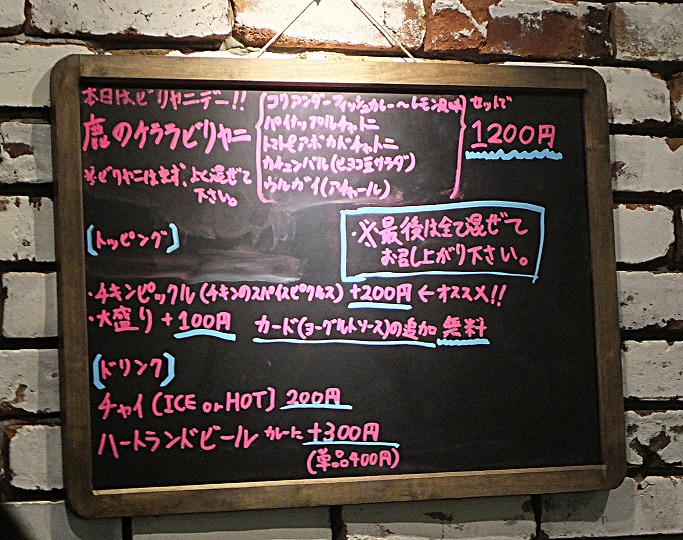 本日はビリヤニデー!!
鹿のケララビリヤニ
※ビリヤニはまず、よく混ぜて
下さい。
コリアンダーフィッシュカレー〜レモン風味
パイナップルチャトニ
トマトとアボカドチャトニ
カチュンバル(ヒヨコ豆サラダ)
ウルガイ(アチャール)
セットで
1200円
・※最後は全て混ぜて
お召し上がり下さい。
[トッピング]
・チキンピックル(チキンのスパイスピクルス)+200円←オススメ!!
・大盛り+100円 カード(ヨーグルトソース)の追加 無料
[ドリンク]
チャイ(ICE or HOT) 200円
ハートランドビール カレーに+300円
(単品400円)